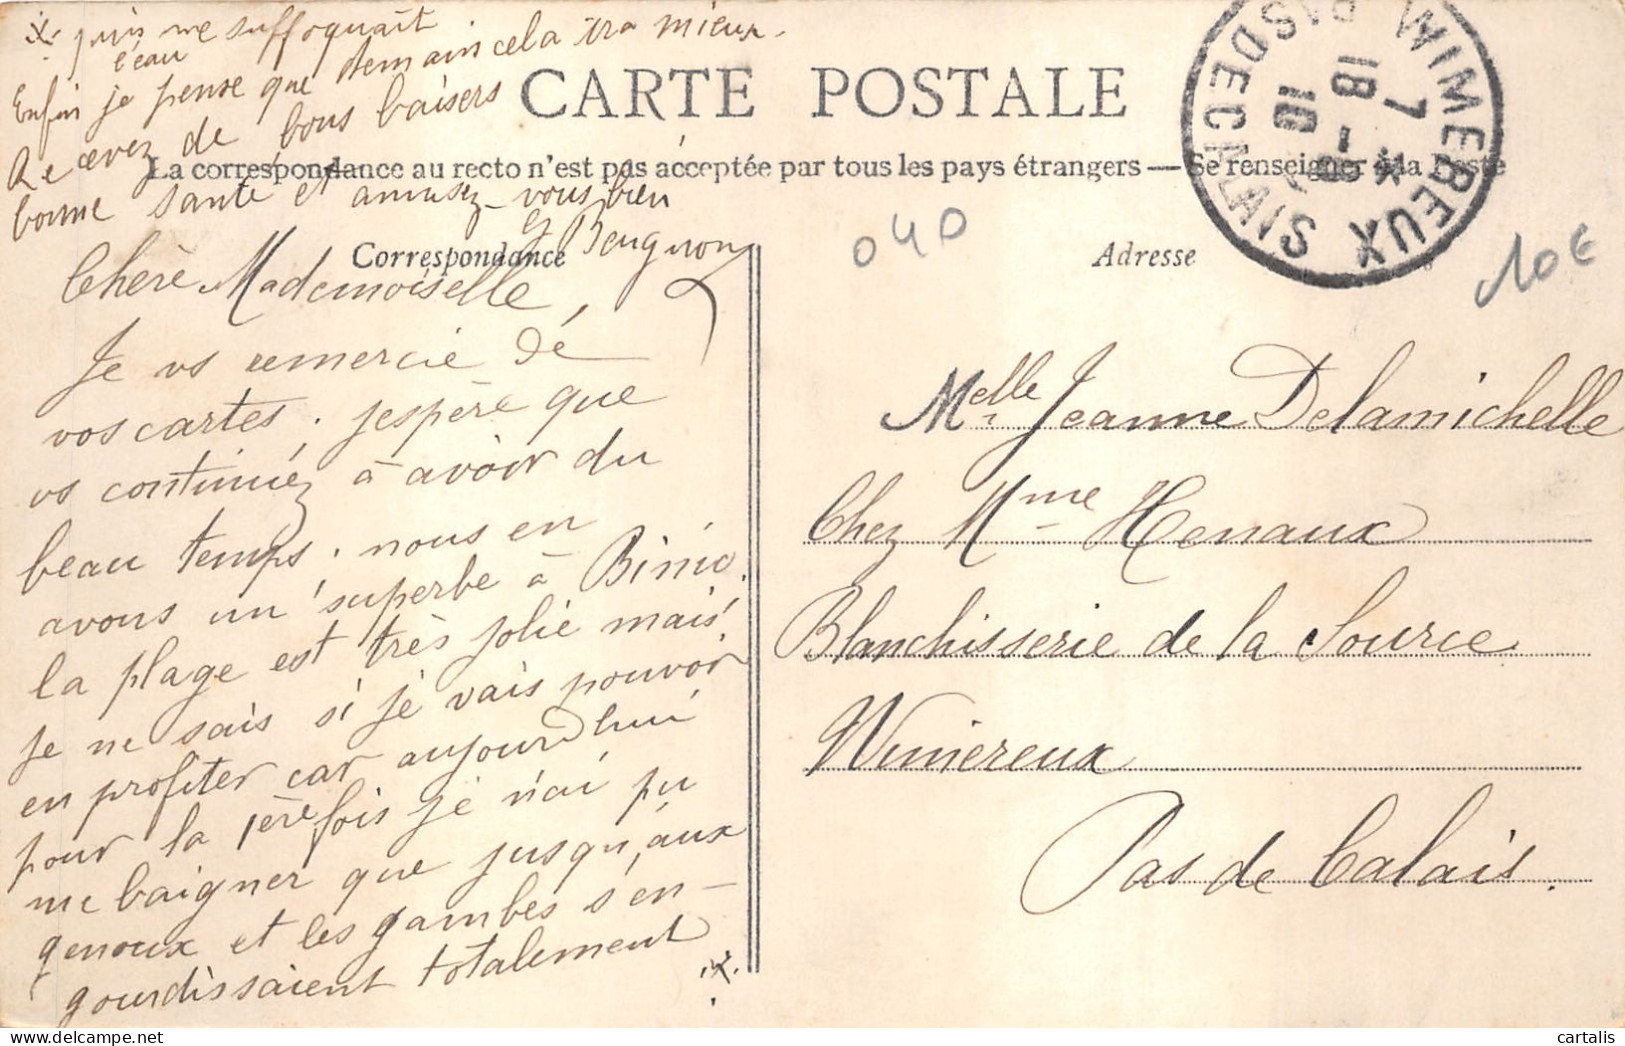 puis me suffoquait
l'eau
Enfin je pense que demain cela ira mieux.
Recevez de bons baisers
CARTE POSTALE
La correspondance au recto n'est pas acceptée par tous les pays étrangers — Se renseigner à la Poste
bonne santé et amusez-vous bien
Beugnon
Correspondance
Adresse
040
10€
WIMEREUX
PAS DE CALAIS
18 - 8
10
Chère Mademoiselle,
Je vs remercie de
vos cartes. j'espère que
vs continuez à avoir du
beau temps. nous en
avons un superbe à Binic.
la plage est très jolie mais
je ne sais si je vais pouvoir
en profiter car aujourd'hui
pour la 1ère fois je n'ai pu
me baigner que jusqu'aux
genoux et les jambes s'en-
gourdissaient totalement
Melle Jeanne Delamichelle
Chez Mme Henaux
Blanchisserie de la Source
Wimereux
Pas de Calais.
cartalis